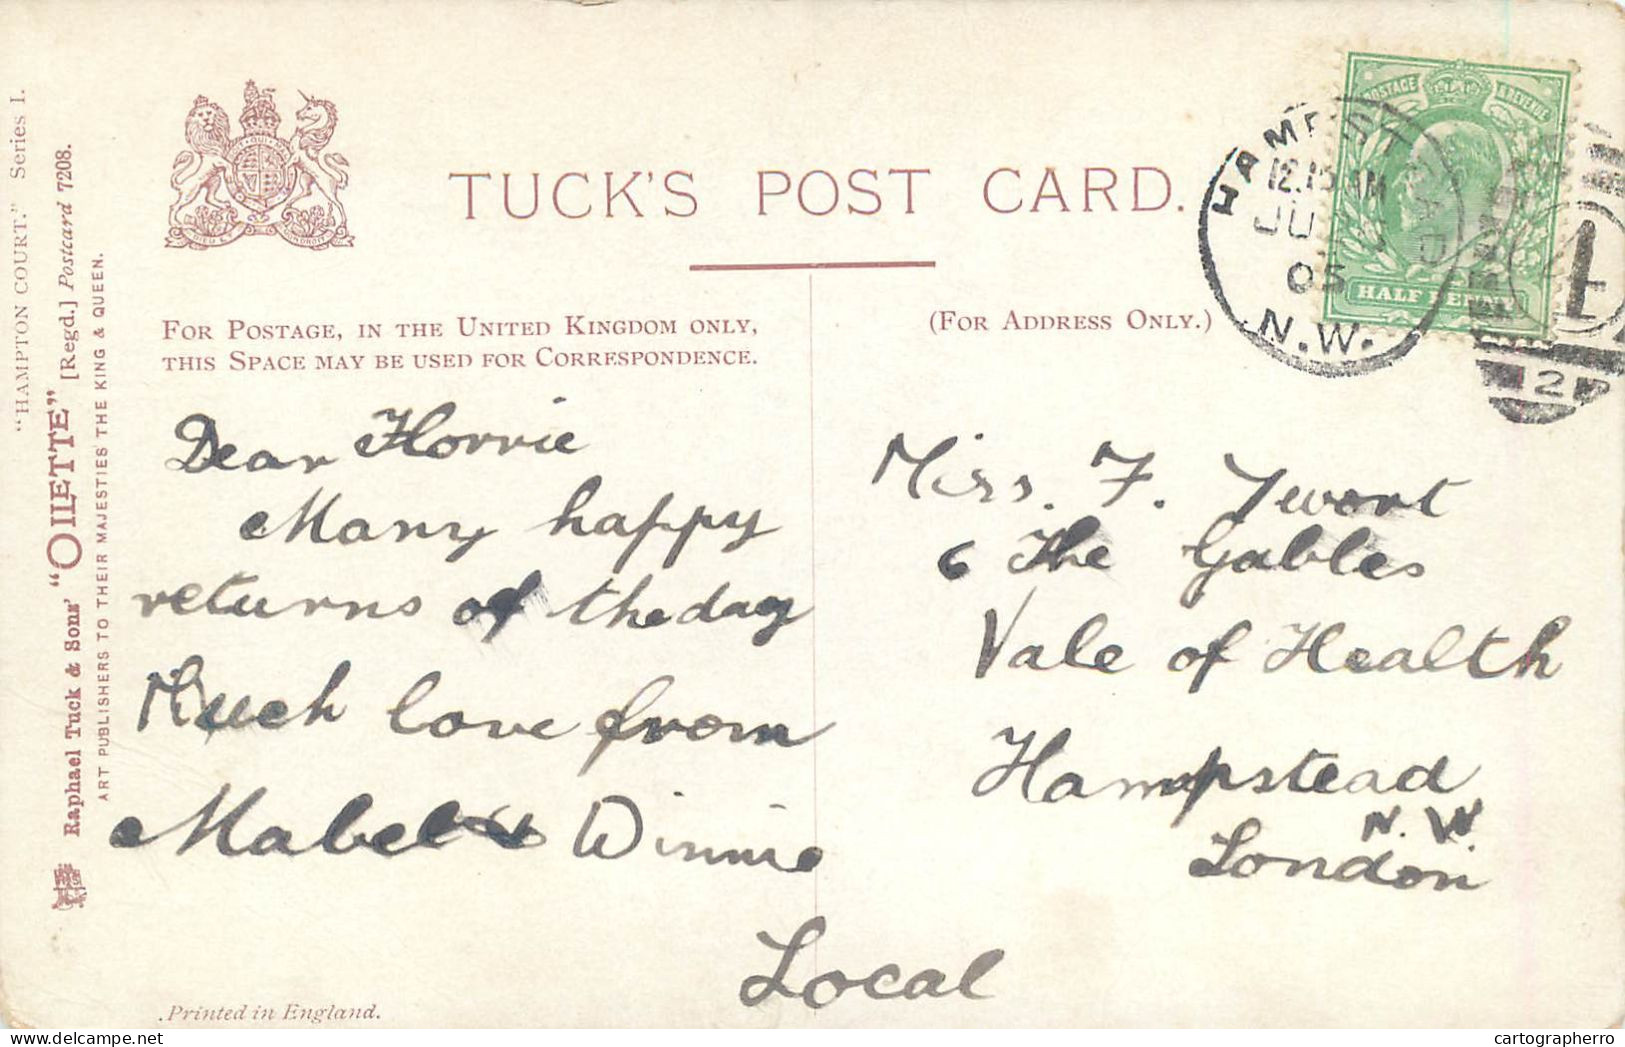 "HAMPTON COURT." Series I.
Raphael Tuck & Sons' "OILETTE" [Regd.] Postcard 7208.
ART PUBLISHERS TO THEIR MAJESTIES THE KING & QUEEN.
TUCK'S POST CARD.
FOR POSTAGE, IN THE UNITED KINGDOM ONLY,
THIS SPACE MAY BE USED FOR CORRESPONDENCE.
(FOR ADDRESS ONLY.)
POSTAGE & REVENUE
HALF PENNY
HAMPSTEAD
12.15 AM
JU
05
N.W.
2
Dear Florrie
Many happy
returns of the day
Much love from
Mabel & Winnie
Miss. F. Twort
6 The Gables
Vale of Health
Hampstead
N.W.
London
Local
Printed in England.
cartographerro